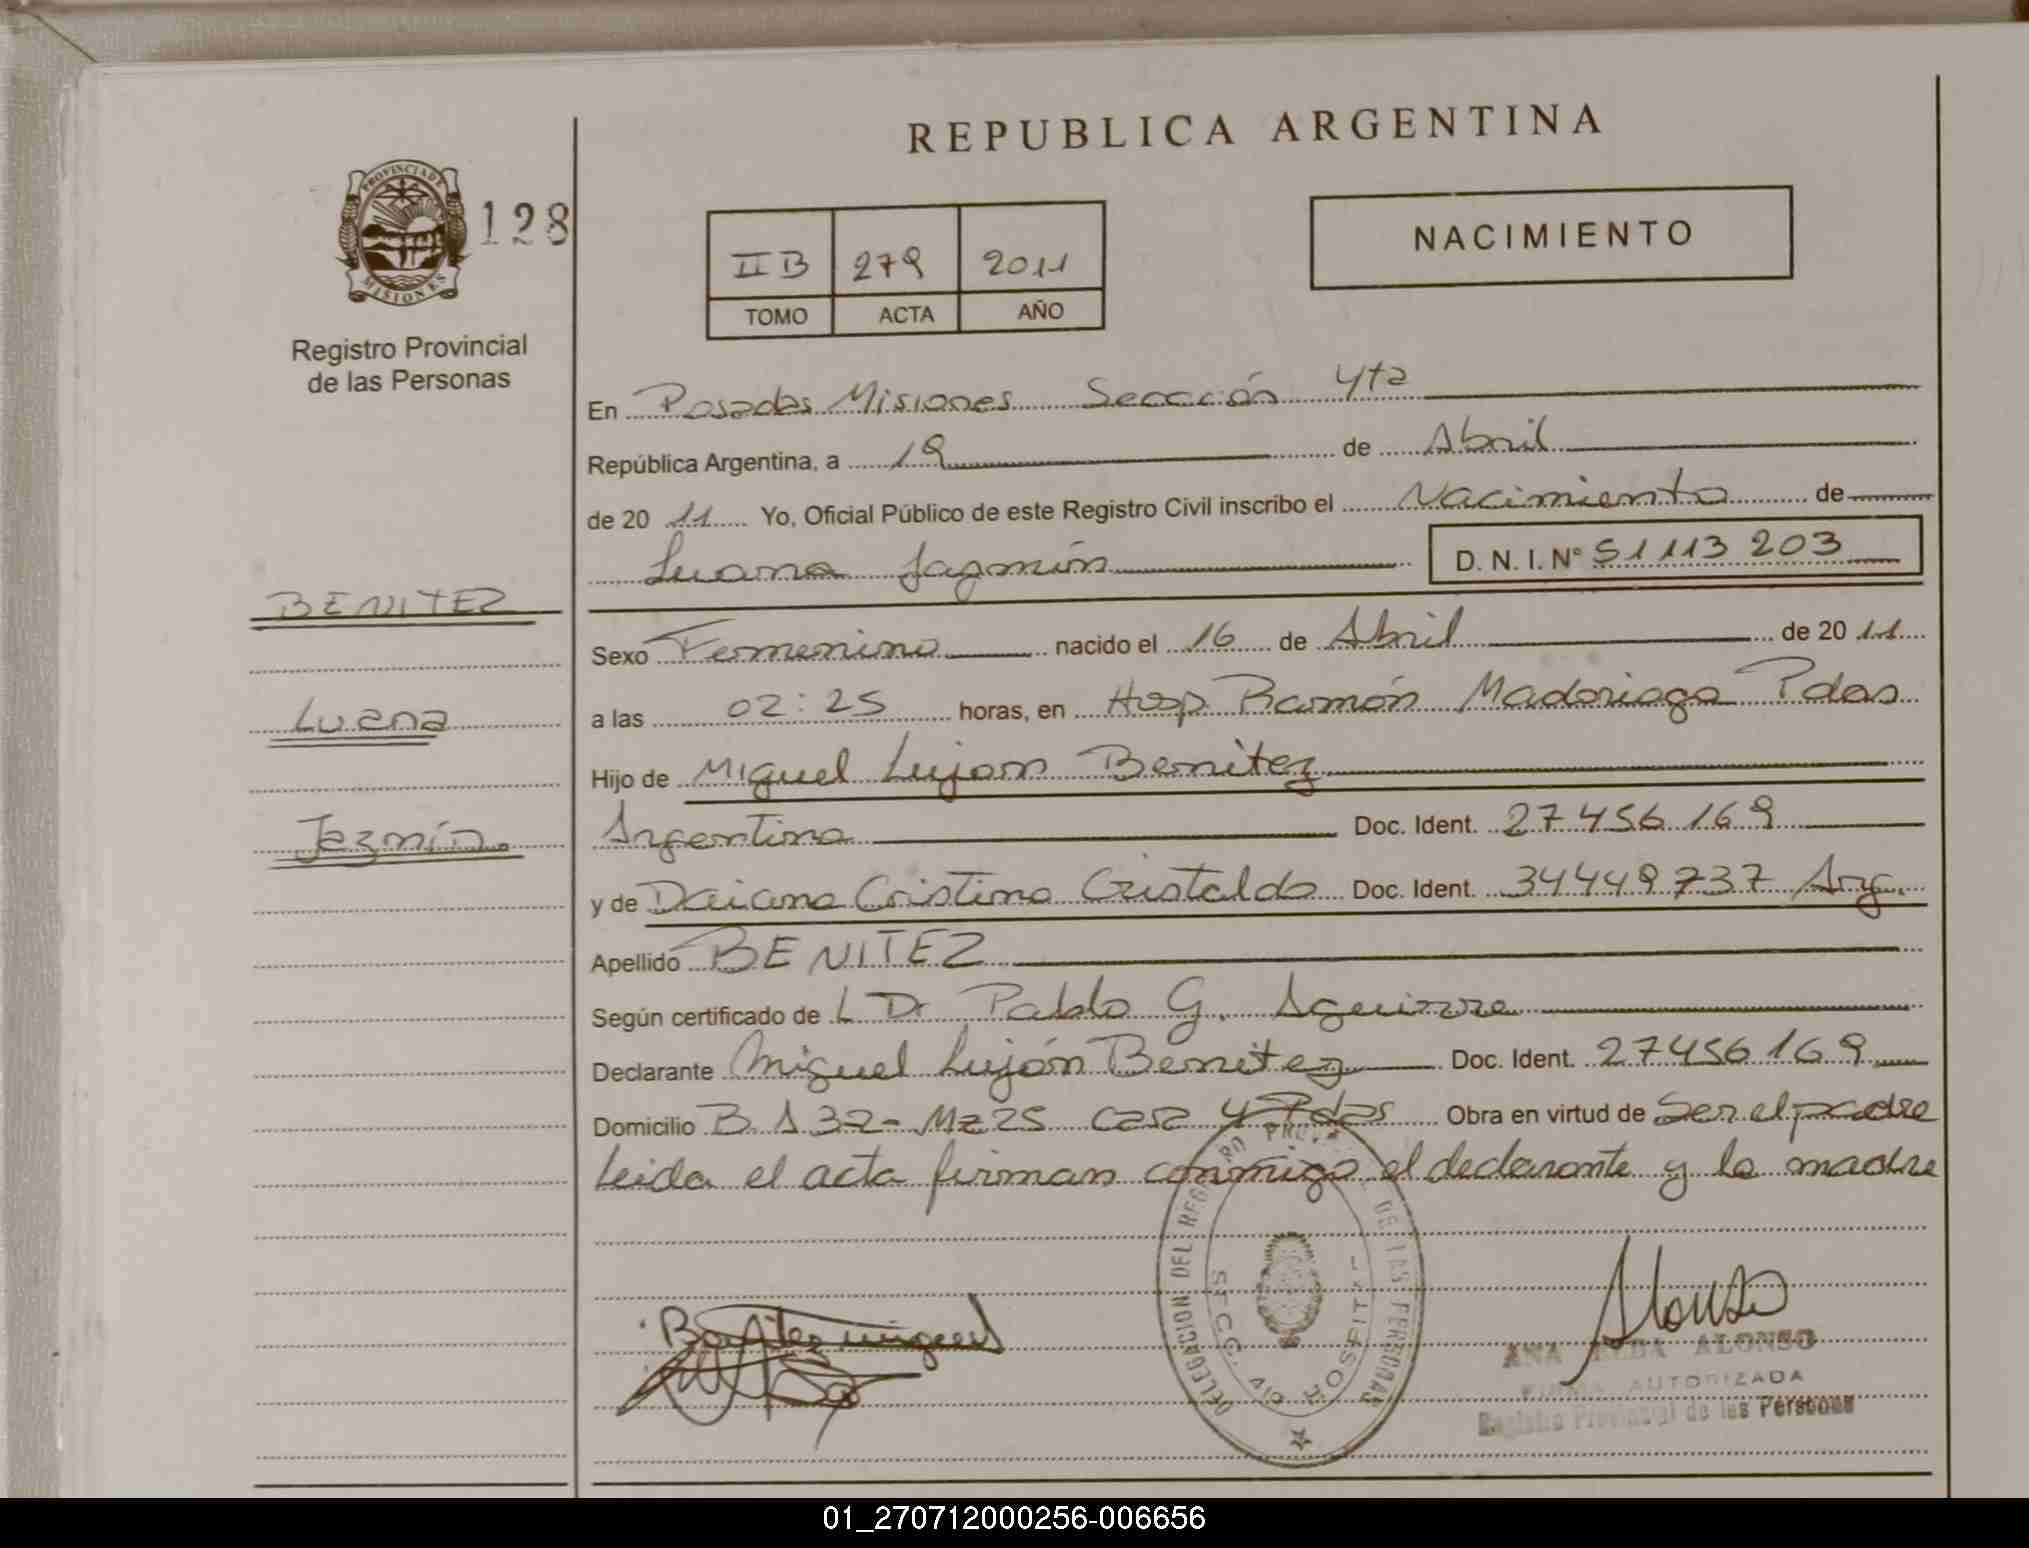 REPUBLICA ARGENTINA
PROVINCIA DE MISIONES
128
Registro Provincial
de las Personas
II B 279 2011
TOMO ACTA AÑO
NACIMIENTO
En Posadas Misiones Seccción 4ta
República Argentina, a 19 de Abril
de 20 11 Yo, Oficial Público de este Registro Civil inscribo el Nacimiento de
Luana Jazmín D. N. I. N° 51113 203
BENITEZ
Luana
Jazmín
Sexo Femenino nacido el 16 de Abril de 20 11
a las 02:25 horas, en Hosp. Ramón Madariaga Pdas
Hijo de Miguel Lujan Benitez
Argentina Doc. Ident. 27456169
y de Daiana Cristina Cristaldo Doc. Ident. 34449737 Arg.
Apellido BENITEZ
Según certificado de L Dr Pablo G. Aguirre
Declarante Miguel Luján Benitez Doc. Ident. 27456169
Domicilio B. A 32- Mz 25 casa 4 Pdas Obra en virtud de Ser el padre
Leida el acta firman conmigo el declarante y la madre
DELEGACION DEL REGISTRO PROV. DE LAS PERSONAS
SECC. 4ta HOSPITAL
Benitez miguel
Alonso
ANA ALONSO
FIRMA AUTORIZADA
Registro Provincial de las Personas
01_270712000256-006656